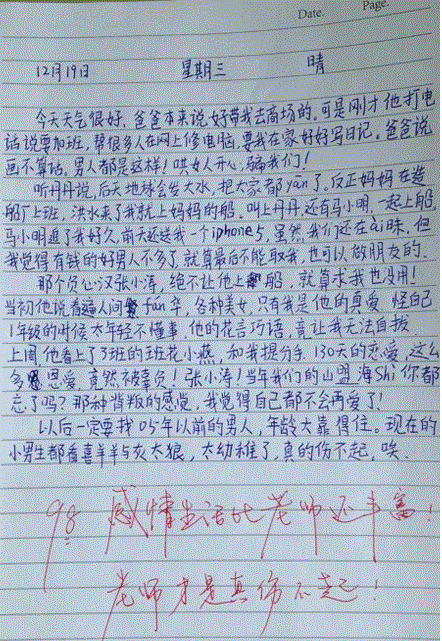 Date. Page.
12月19日 星期三 晴
今天天气很好,爸爸本来说好带我去商场的。可是刚才他打电
话说要加班,帮很多人在网上修电脑,要我在家好好写日记。爸爸说
画不算话,男人都是这样!哄女人开心,骗我们!
听丹丹说,后天地球会发大水,把大家都yān了。反正妈妈在造
船厂上班,洪水来了我就上妈妈的船。叫上丹丹,还有马小明,一起上船。
马小明追了我好久,前天还送我一个iphone5,虽然我们还在ài昧,但
我觉得有钱的好男人不多了,就算最后不能取我,也可以做朋友的。
那个负心汉张小涛,绝不让他上船,就算求我也没用!
当初他说看遍人间fán华,各种美女,只有我是他的真爱。怪自己
1年级的时候太年轻不懂事,他的花言巧语,竟让我无法自拔。
上周他看上了3班的班花小燕,和我提分手。130天的恋爱,这么
多恩爱,竟然被辜负!张小涛!当年我们的山盟海Shì你都
忘了吗?那种背叛的感觉,我觉得自己都不会再爱了!
以后一定要找05年以前的男人,年龄大靠得住。现在的
小男生都看喜羊羊与灰太狼,太幼稚了,真的伤不起,唉.
98 感情生活比老师还丰富!
老师才是真伤不起!